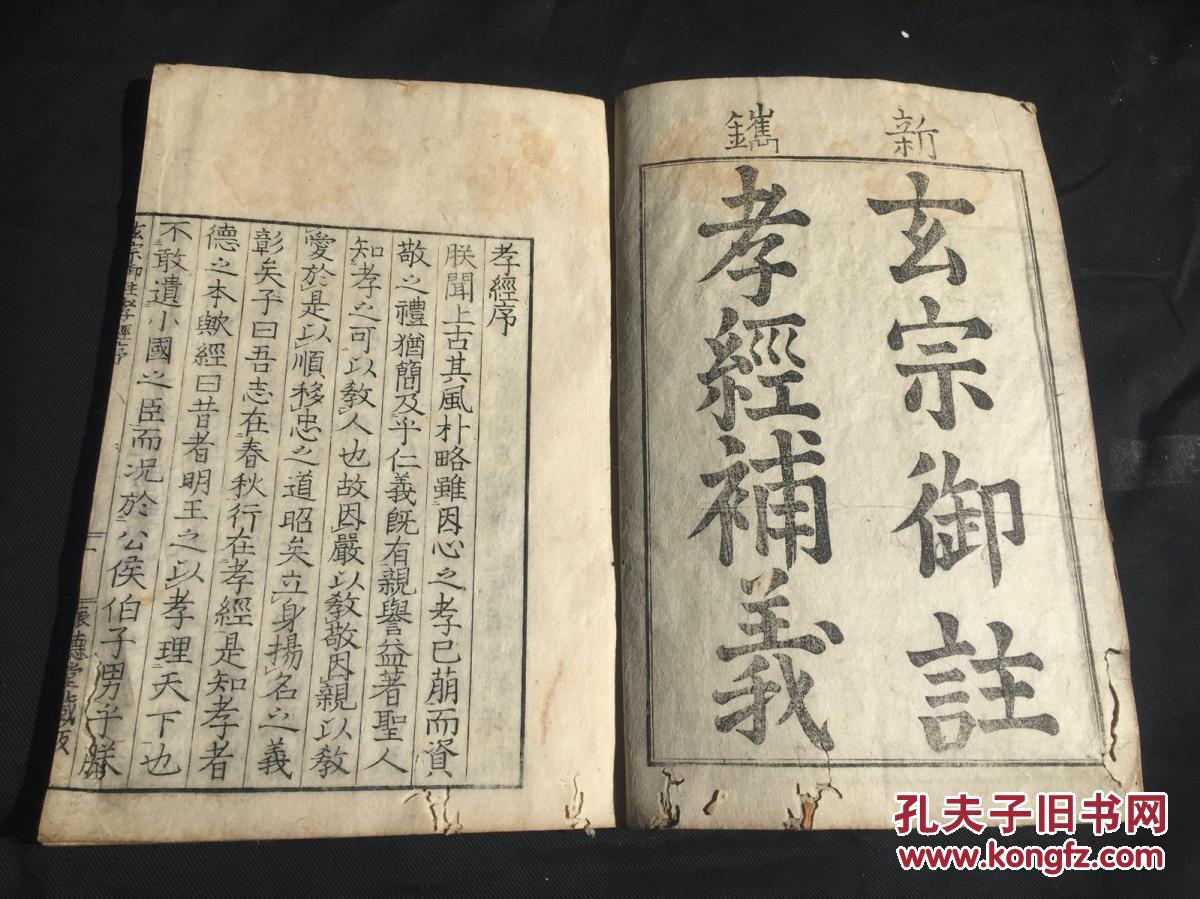 新鐫
玄宗御註
孝經補義
孝經序
朕聞上古其風朴略雖因心之孝已萠而資
敬之禮猶簡及乎仁義旣有親譽益著聖人
知孝之可以敎人也故因嚴以敎敬因親以敎
愛於是以順移忠之道昭矣立身揚名之義
彰矣子曰吾志在春秋行在孝經是知孝者
德之本歟經曰昔者明王之以孝理天下也
不敢遺小國之臣而況於公侯伯子男乎朕
玄宗御註孝經序
一
德堂藏版
孔夫子旧书网
www.kongfz.com